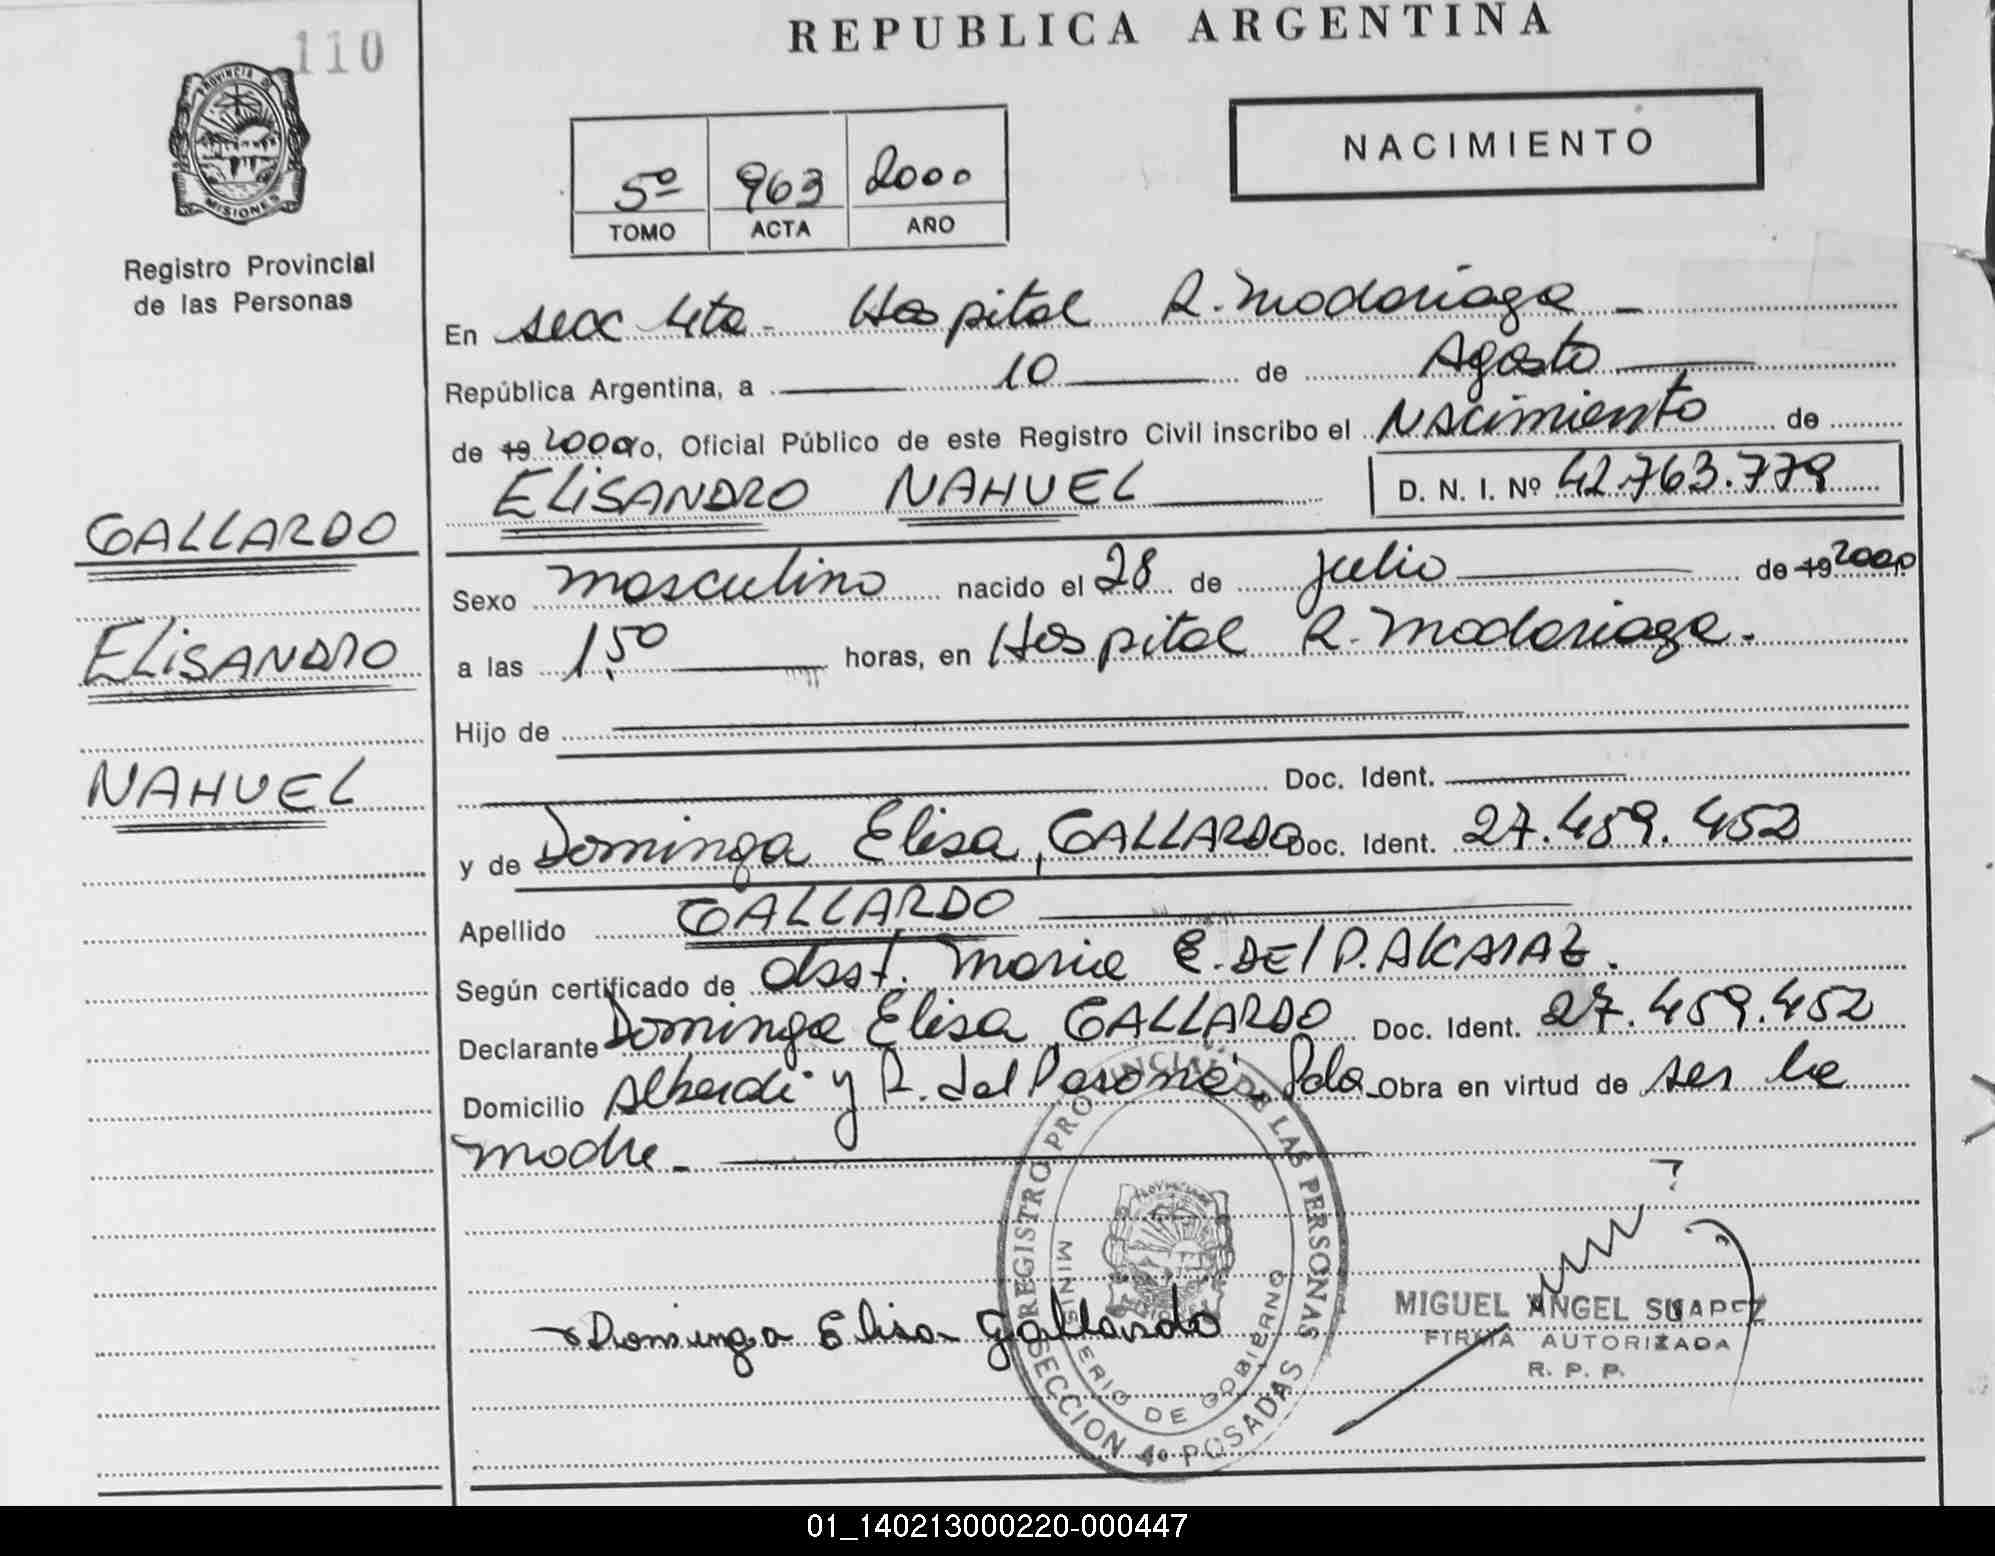 REPUBLICA ARGENTINA
110
PROVINCIA DE
MISIONES
Registro Provincial
de las Personas
5º 963 2000
TOMO ACTA AÑO
NACIMIENTO
En secc 4ta - Hospital R. Madariaga -
República Argentina, a 10 de Agosto
de 19 2000 Yo, Oficial Público de este Registro Civil inscribo el Nacimiento de
ELISANDRO NAHUEL D. N. I. Nº 42.763.779
GALLARDO
ELISANDRO
NAHUEL
Sexo masculino nacido el 28 de julio de 19 2000
a las 1,50 horas, en Hospital R. Madariaga.
Hijo de
Doc. Ident.
y de Dominga Elisa, GALLARDO Doc. Ident. 27.459.452
Apellido GALLARDO
Según certificado de obst. Maria E. DEL P. ALCARAZ.
Declarante Dominga Elisa, GALLARDO Doc. Ident. 27.459.452
Domicilio Alberdi y R. del Paraná. Pdas - Obra en virtud de ser la
madre -
REGISTRO PROVINCIAL DE LAS PERSONAS
MINISTERIO DE GOBIERNO
SECCION 4º POSADAS
Dominga Elisa gallardo
MIGUEL ANGEL SUAREZ
FIRMA AUTORIZADA
R. P. P.
01_140213000220-000447